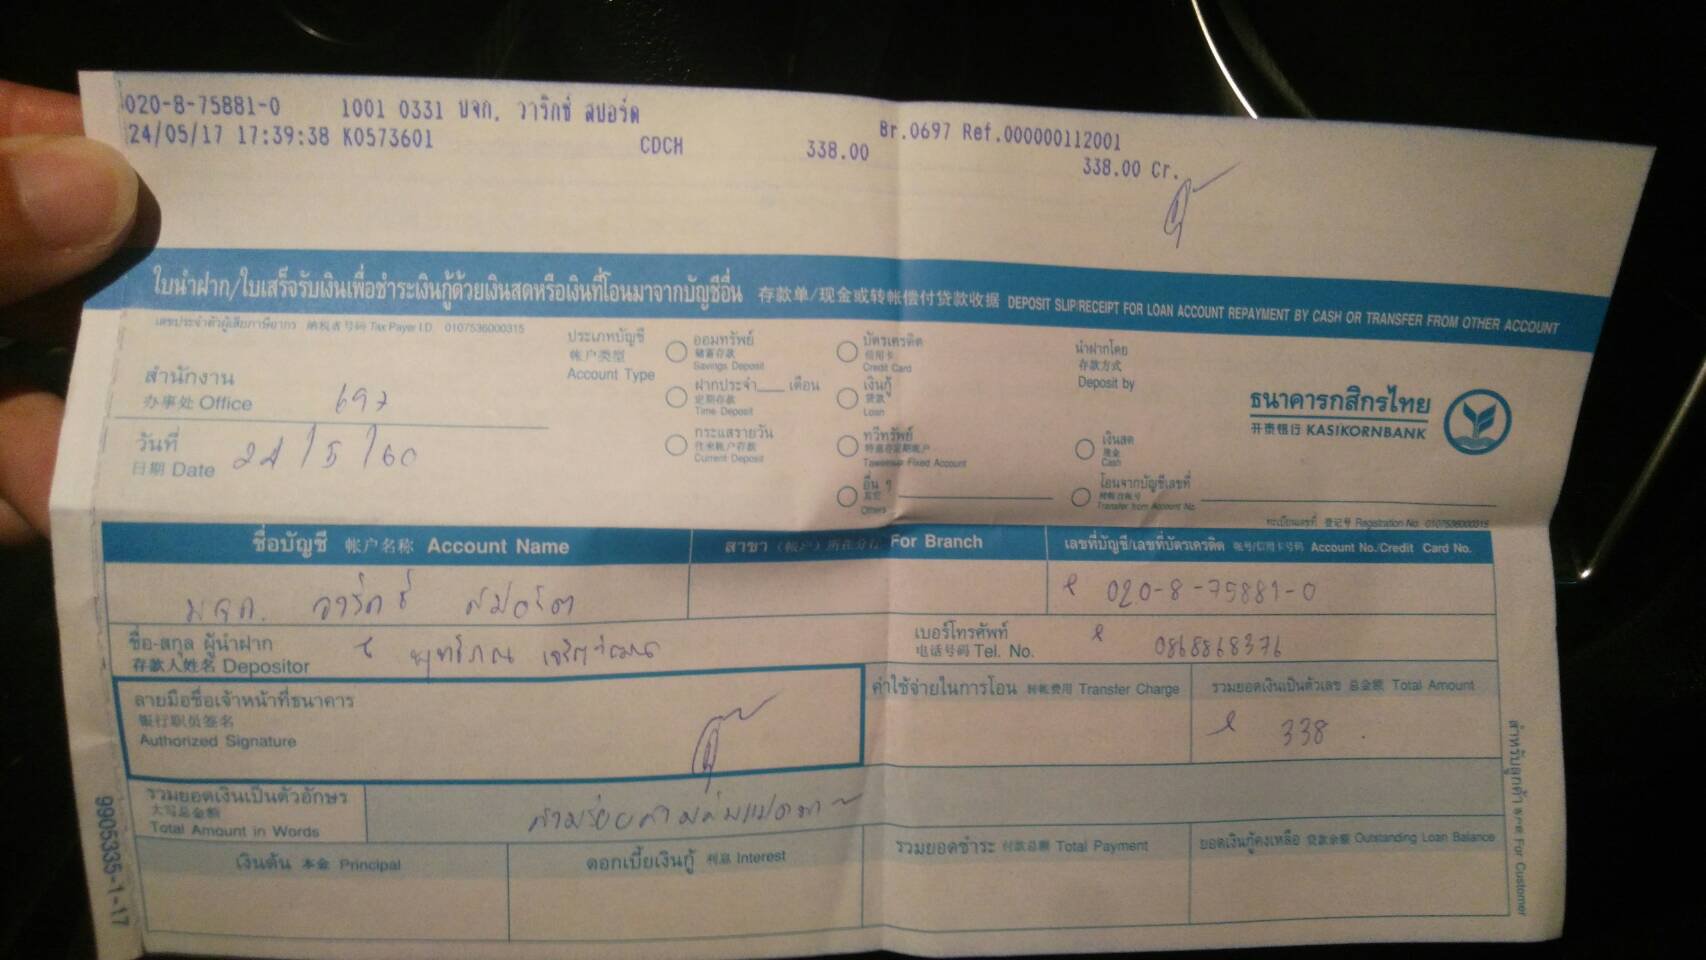 020-8-75881-0 1001 0331 บจก. วาริกซ์ สปอร์ต Br.0697 Ref.000000112001
24/05/17 17:39:38 K0573601 CDCH 338.00 338.00 Cr.
ใบนำฝาก/ใบเสร็จรับเงินเพื่อชำระเงินกู้ด้วยเงินสดหรือเงินที่โอนมาจากบัญชีอื่น 存款单/现金或转帐偿付贷款收据 DEPOSIT SLIP/RECEIPT FOR LOAN ACCOUNT REPAYMENT BY CASH OR TRANSFER FROM OTHER ACCOUNT
เลขประจำตัวผู้เสียภาษีอากร 纳税者号码 Tax Payer I.D. 0107536000315
สำนักงาน
办事处 Office 697
วันที่
日期 Date 24/5/60
ประเภทบัญชี
帐户类型
Account Type
ออมทรัพย์
储蓄存款
Savings Deposit
ฝากประจำ____เดือน
定期存款
Time Deposit
กระแสรายวัน
往来帐户存款
Current Deposit
บัตรเครดิต
信用卡
Credit Card
เงินกู้
贷款
Loan
ทวีทรัพย์
特意存定期帐户
Taweesup Fixed Account
อื่น ๆ
其它
Others
นำฝากโดย
存款方式
Deposit by
เงินสด
现金
Cash
โอนจากบัญชีเลขที่
转帐自帐号
Transfer from Account No.
ธนาคารกสิกรไทย
开泰银行 KASIKORNBANK
ทะเบียนเลขที่ 登记号 Registration No. 0107536000315
ชื่อบัญชี 帐户名称 Account Name
สาขา (帐户) 所在分行 For Branch
เลขที่บัญชี/เลขที่บัตรเครดิต 帐号/信用卡号码 Account No./Credit Card No.
บจก. วาริกซ์ สปอร์ต
020-8-75881-0
ชื่อ-สกุล ผู้นำฝาก
存款人姓名 Depositor
เบอร์โทรศัพท์
电话号码 Tel. No. 0868868376
ลายมือชื่อเจ้าหน้าที่ธนาคาร
银行职员签名
Authorized Signature
ค่าใช้จ่ายในการโอน 转帐费用 Transfer Charge
รวมยอดเงินเป็นตัวเลข 总金额 Total Amount
338
รวมยอดเงินเป็นตัวอักษร
大写总金额
Total Amount in Words สามร้อยสามสิบแปดบาท
เงินต้น 本金 Principal
ดอกเบี้ยเงินกู้ 利息 Interest
รวมยอดชำระ 付款总额 Total Payment
ยอดเงินกู้คงเหลือ 贷款余额 Outstanding Loan Balance
สำหรับลูกค้า For Customer
9905335-1-17